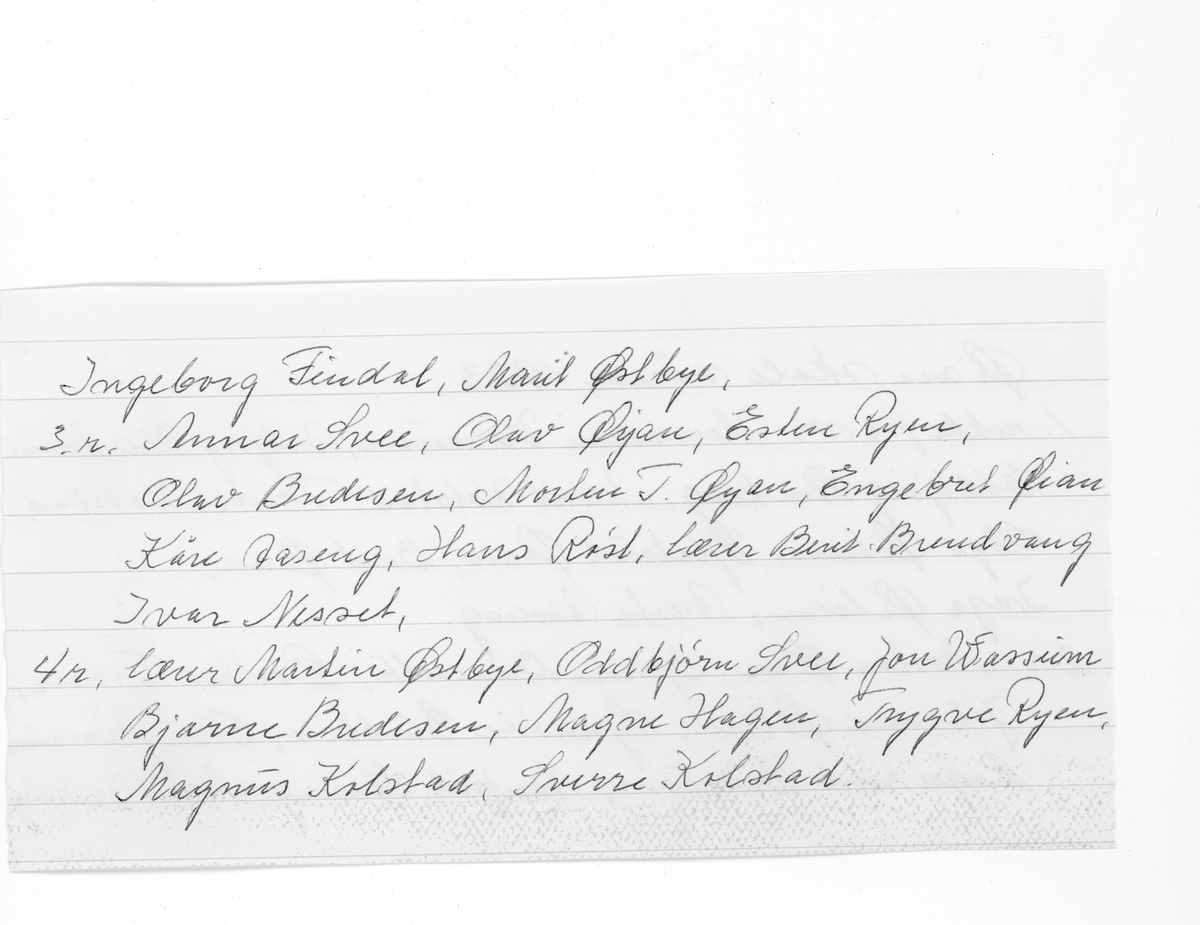 Ingeborg Findal, Marit Østbye,
3.r. Annar Svee, Olav Øyan, Esten Ryen,
Olav Bredesen, Morten T. Øyan, Engebret Øian
Kåre Aaseng, Hans Røst, lærer Berit Brendvang
Ivar Nesset,
4r, lærer Martin Østbye, Oddbjørn Svee, Jon Wassum
Bjarne Bredesen, Magne Hagen, Trygve Ryen,
Magnus Kolstad, Sverre Kolstad.